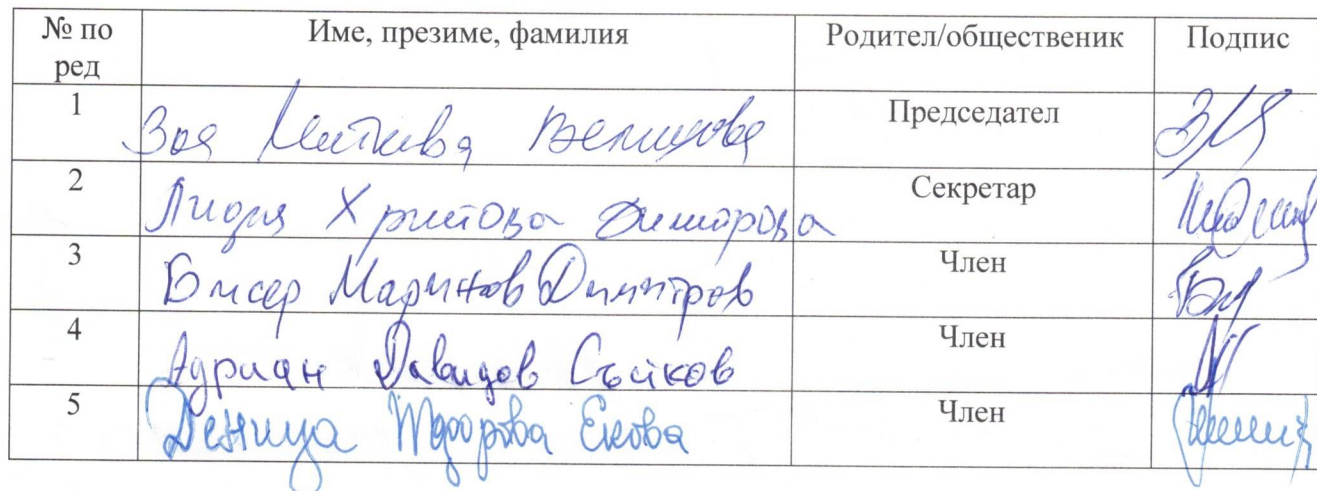 № по ред Име, презиме, фамилия Родител/общественик Подпис
1 Зоя Председател
2 Лидия Христова Димитрова Секретар
3 Бисер Маринов Димитров Член
4 Адриан Давидов Член
5 Деница Член